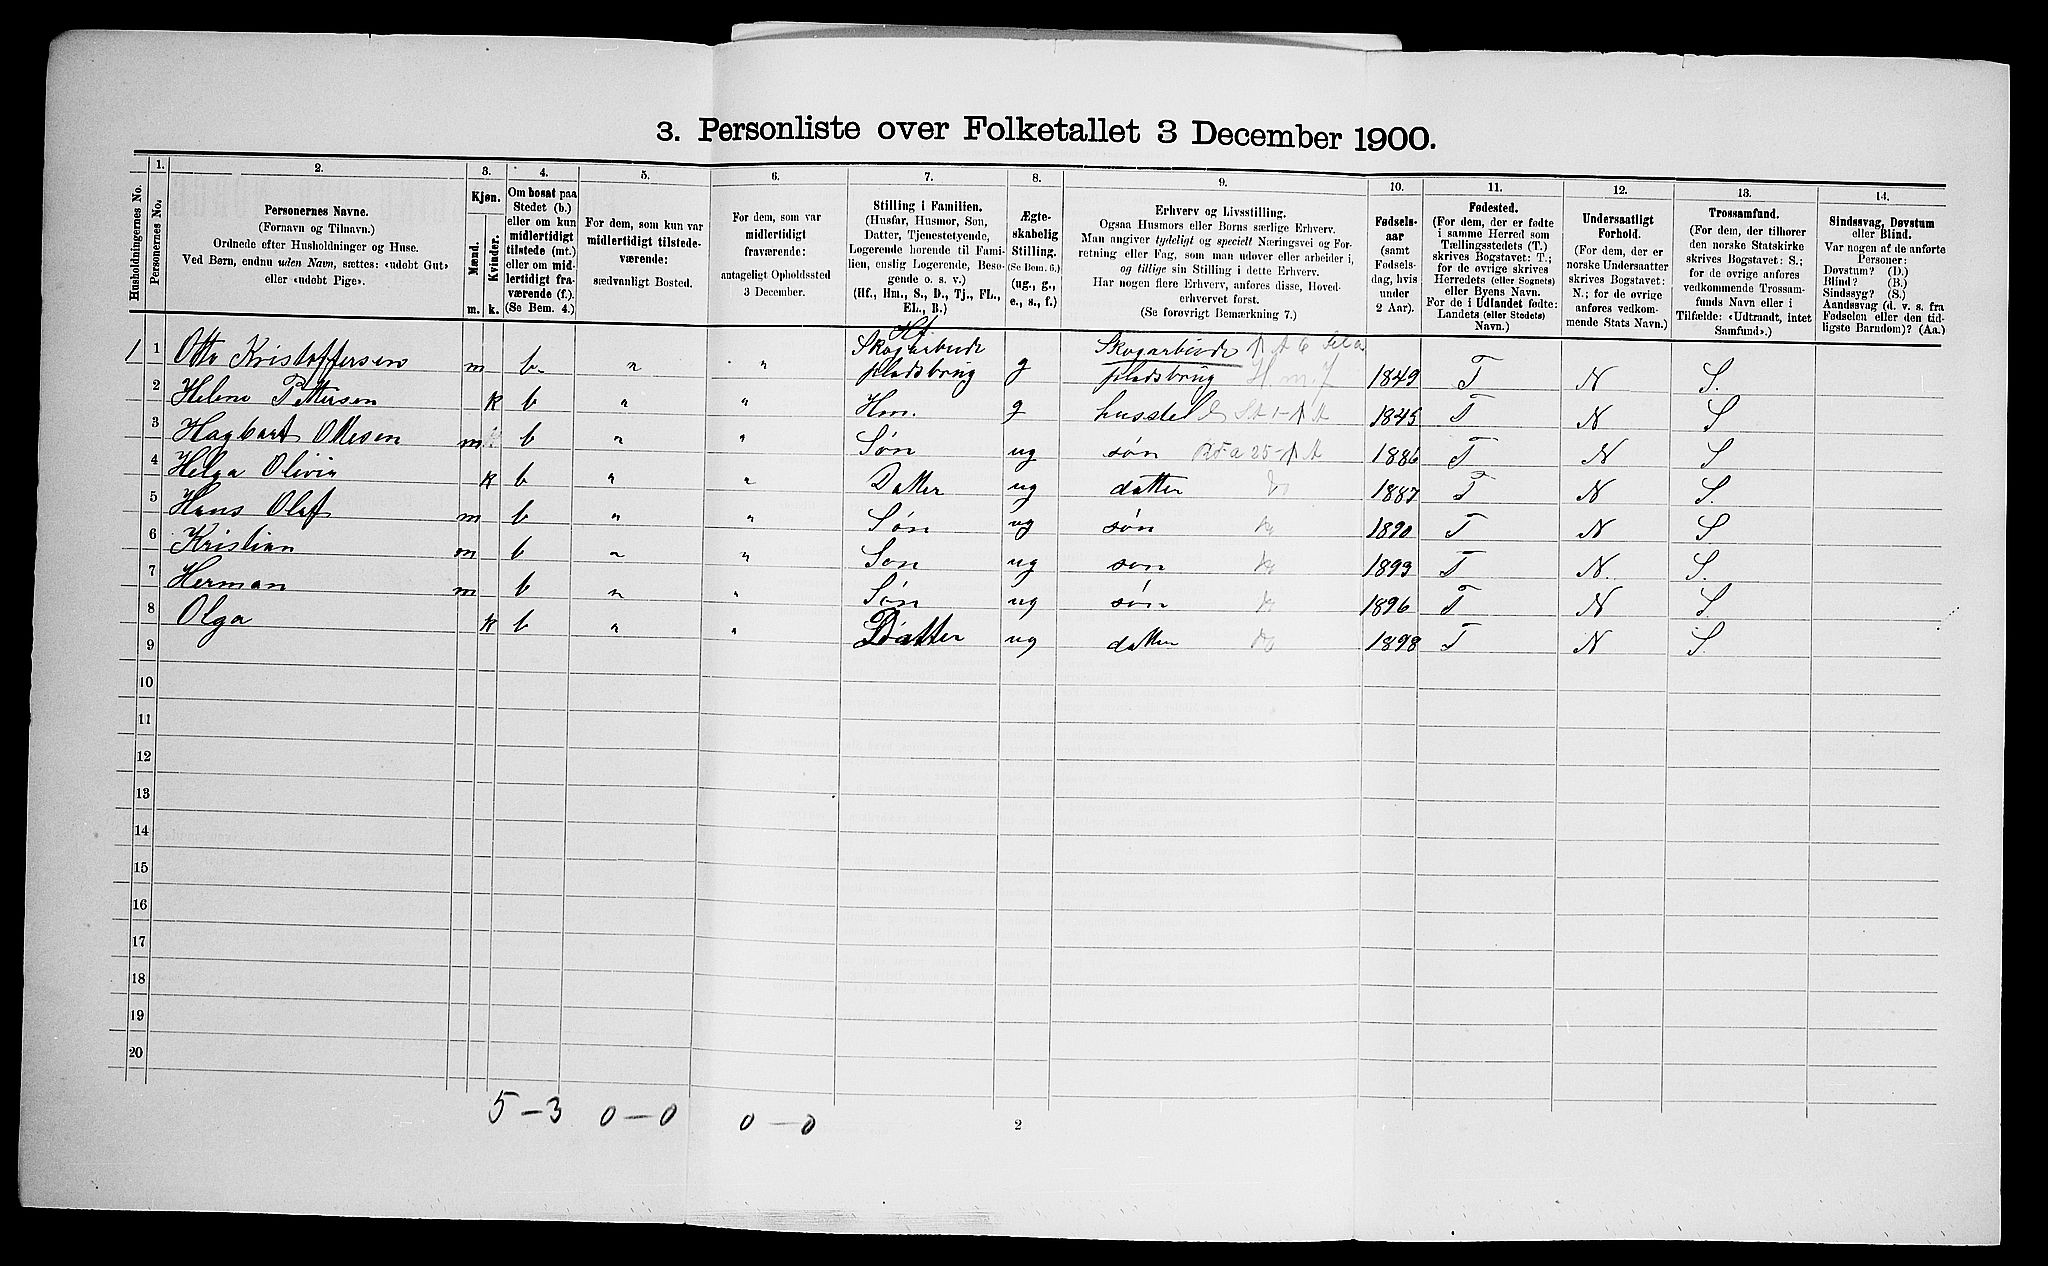 3. Personliste over Folketallet 3 December 1900.
1. 2. 3. 4. 5. 6. 7. 8. 9. 10. 11. 12. 13. 14.
Husholdningernes No.
Personernes No.
Personernes Navne.
(Fornavn og Tilnavn.)
Ordnede efter Husholdninger og Huse.
Ved Børn, endnu uden Navn, sættes: «udøbt Gut»
eller «udøbt Pige».
Kjøn.
Mænd.
Kvinder.
m. k.
Om bosat paa
Stedet (b.)
eller om kun
midlertidigt
tilstede (mt.)
eller om mid-
lertidigt fra-
værende (f.).
(Se Bem. 4.)
For dem, som kun var
midlertidigt tilstede-
værende:
sædvanligt Bosted.
For dem, som var
midlertidigt
fraværende:
antageligt Opholdssted
3 December.
Stilling i Familien.
(Husfar, Husmor, Søn,
Datter, Tjenestetyende,
Logerende hørende til Fami-
lien, enslig Logerende, Besø-
gende o. s. v.)
(Hf., Hm., S., D., Tj., FL.,
EL., B.)
Ægte-
skabelig
Stilling.
(Se Bem. 6.)
(ug., g.,
e., s., f.)
Erhverv og Livsstilling.
Ogsaa Husmors eller Børns særlige Erhverv.
Man angiver tydeligt og specielt Næringsvei og For-
retning eller Fag, som man udøver eller arbeider i,
og tillige sin Stilling i dette Erhverv.
Har nogen flere Erhverv, anføres disse, Hoved-
erhvervet først.
(Se forøvrigt Bemærkning 7.)
Fødsels-
aar
(samt
Fødsels-
dag, hvis
under
2 Aar).
Fødested.
(For dem, der er fødte
i samme Herred som
Tællingsstedets (T.)
skrives Bogstavet: T.;
for de øvrige skrives
Herredets (eller Sognets)
eller Byens Navn.
For de i Udlandet fødte:
Landets (eller Stedets)
Navn.)
Undersaatligt
Forhold.
(For dem, der er
norske Undersaatter
skrives Bogstavet:
N.; for de øvrige
anføres vedkom-
mende Stats Navn.)
Trossamfund.
(For dem, der tilhører
den norske Statskirke
skrives Bogstavet: S.;
for de øvrige anføres
vedkommende Trossam-
funds Navn eller i
Tilfælde: «Udtraadt, intet
Samfund».)
Sindssvag, Døvstum
eller Blind.
Var nogen af de anførte
Personer:
Døvstum? (D.)
Blind? (B.)
Sindssyg? (S.)
Aandssvag (d. v. s. fra
Fødselen eller den tid-
ligste Barndom)? (Aa.)
Hf.
1 1 Otto Kristoffersen m b " " Skogarbeide g Skogarbeide 1849 T N S.
pladsbrug pladsbrug
2 Helene Pettersen k b " " Hm. g husstel 1845 T N S
3 Hagbart Ottesen m b " " Søn ug søn 1886 T N S
4 Helga Olivia k b " " Datter ug datter 1887 T N S.
5 Hans Olaf m b " " Søn ug søn 1890 T N S
6 Kristian m b " " Søn ug søn 1893 T N. S.
7 Herman m b " " Søn ug søn 1896 T N S
8 Olga k b " " Datter ug datter 1898 T N S.
9
10
11
12
13
14
15
16
17
18
19
20
5-3 0-0 0-0
2